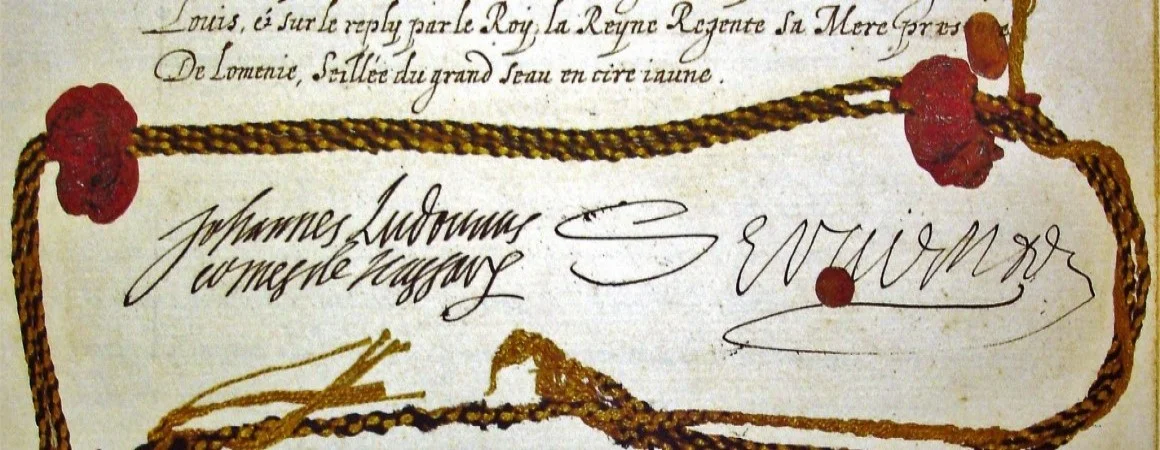 Louis, & sur le reply par le Roy, la Reyne Regente sa Mere presente
De Lomenie, Seillée du grand seau en cire iaune.
Johannes Ludouicus
comes de Nassau
Servien